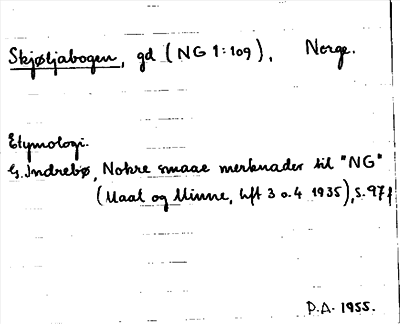 Skjøtjabogen, gd (NG 1:109), Norge.
Etymologi.
G. Indrebø, Nokre smaae merknader til "NG"
(Maal og Minne, hft 3 o. 4 1935), s. 97f
P.A. 1955.